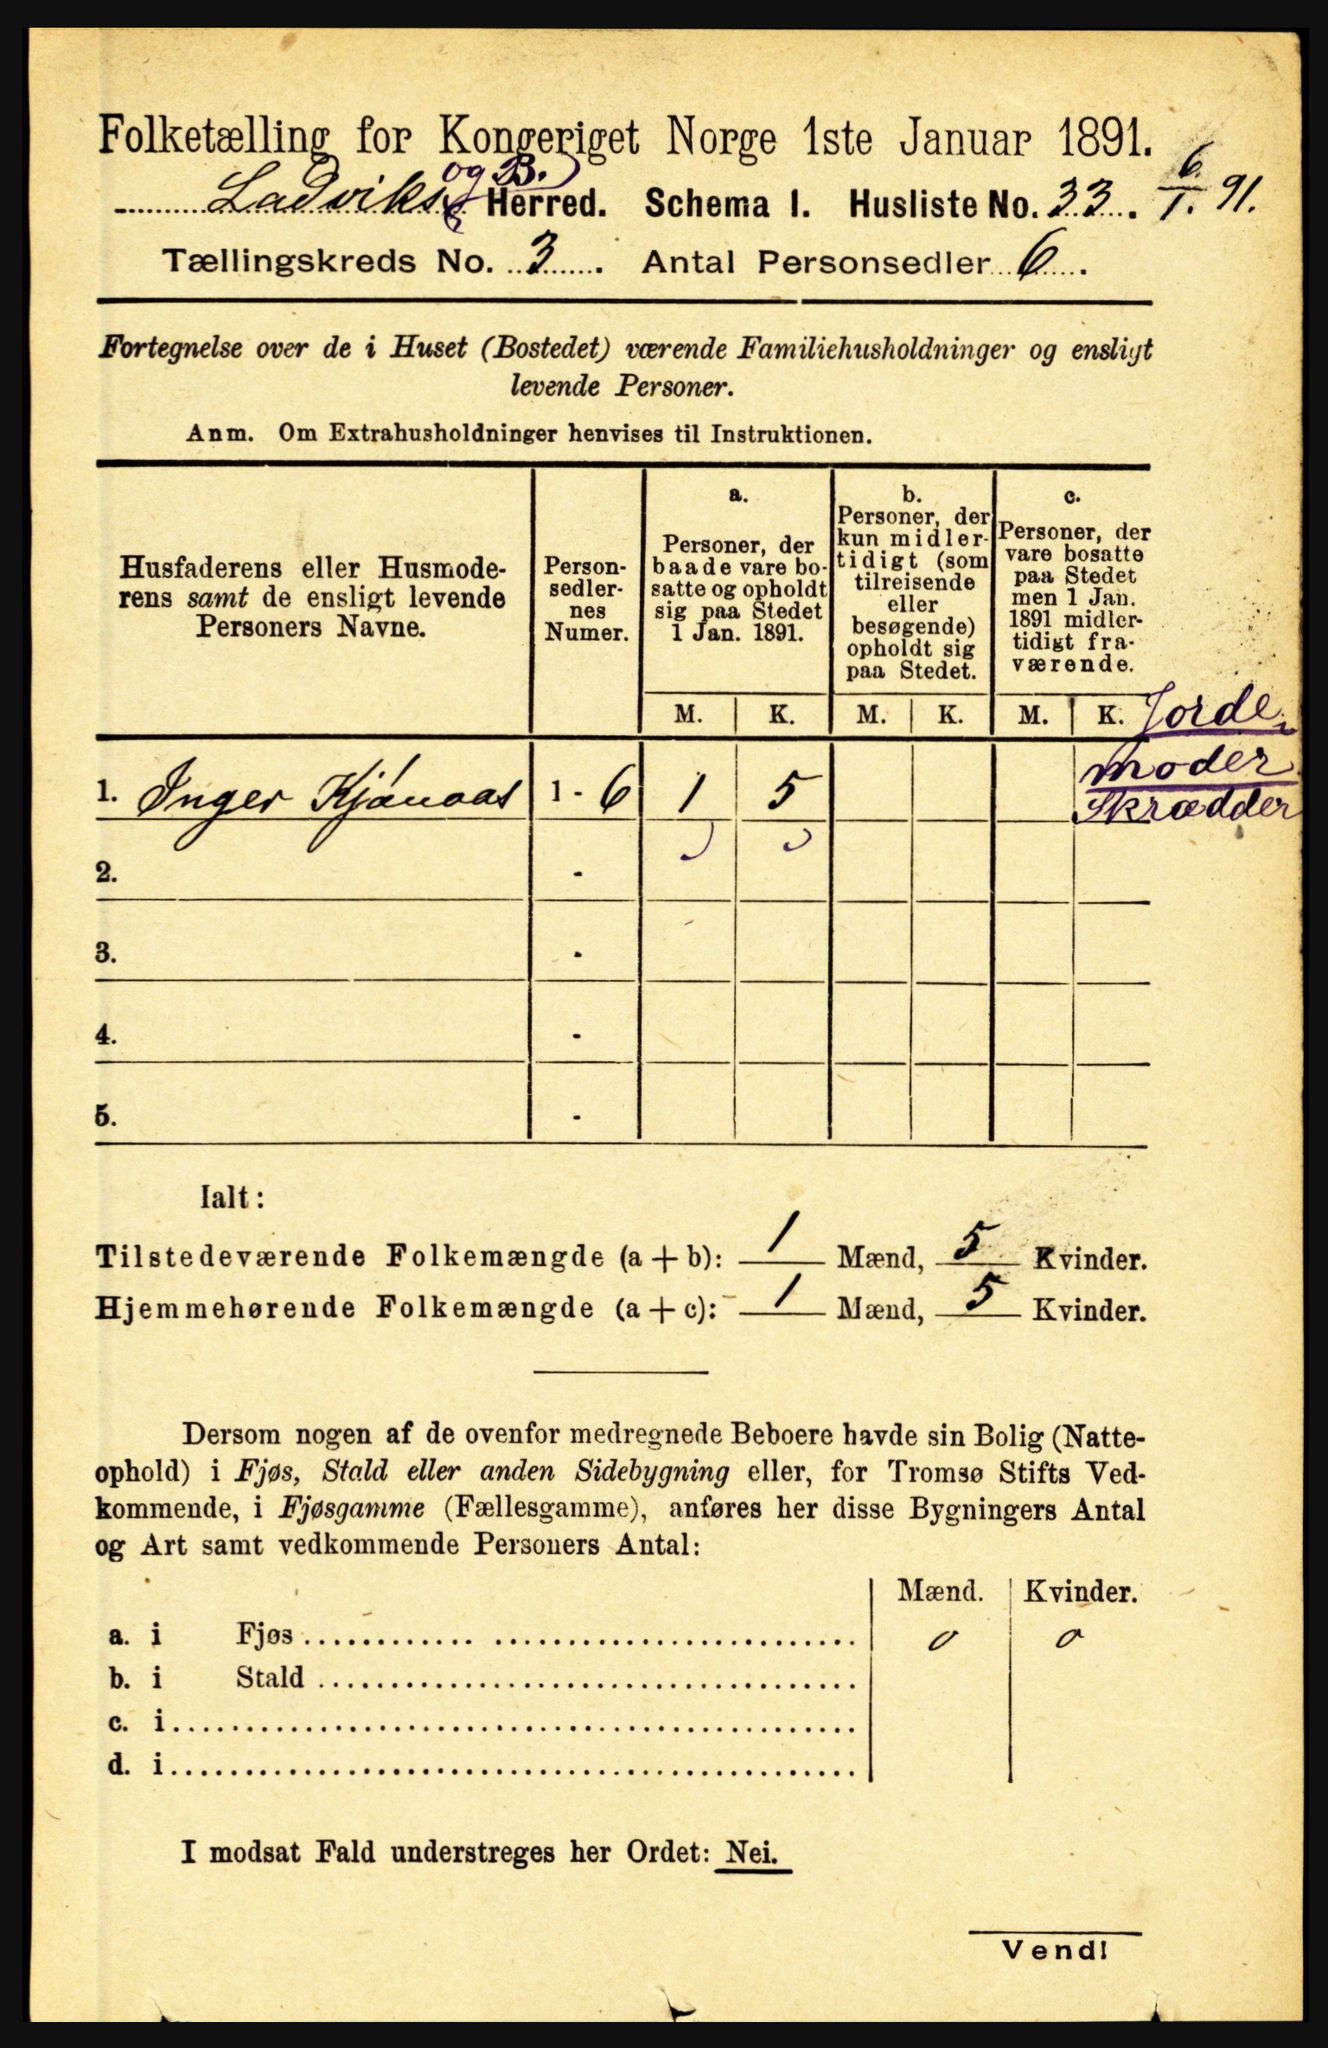 Folketælling for Kongeriget Norge 1ste Januar 1891.
og B.
Ladviks Herred. Schema 1. Husliste No. 33. 6/1. 91.
Tællingskreds No. 3. Antal Personsedler 6.
Fortegnelse over de i Huset (Bostedet) værende Familiehusholdninger og ensligt
levende Personer.
Anm. Om Extrahusholdninger henvises til Instruktionen.
Husfaderens eller Husmode-
rens samt de ensligt levende
Personers Navne.
Person-
sedler-
nes
Numer.
a.
Personer, der
baade vare bo-
satte og opholdt
sig paa Stedet
1 Jan. 1891.
b.
Personer, der
kun midler-
tidigt (som
tilreisende
eller
besøgende)
opholdt sig
paa Stedet.
c.
Personer, der
vare bosatte
paa Stedet
men 1 Jan.
1891 midler-
tidigt fra-
værende.
M. K. M. K. M. K.
Jorde-
moder
Skrædder
1. Inger Kjónaas 1 - 6 1 5
2. -
3. -
4. -
5. -
Ialt:
Tilstedeværende Folkemængde (a + b): 1 Mænd, 5 Kvinder.
Hjemmehørende Folkemængde (a + c): 1 Mænd, 5 Kvinder.
Dersom nogen af de ovenfor medregnede Beboere havde sin Bolig (Natte-
ophold) i Fjøs, Stald eller anden Sidebygning eller, for Tromsø Stifts Ved-
kommende, i Fjøsgamme (Fællesgamme), anføres her disse Bygningers Antal
og Art samt vedkommende Personers Antal:
Mænd. Kvinder.
a. i Fjøs 0 0
b. i Stald
c. i
d. i
I modsat Fald understreges her Ordet: Nei.
Vend!